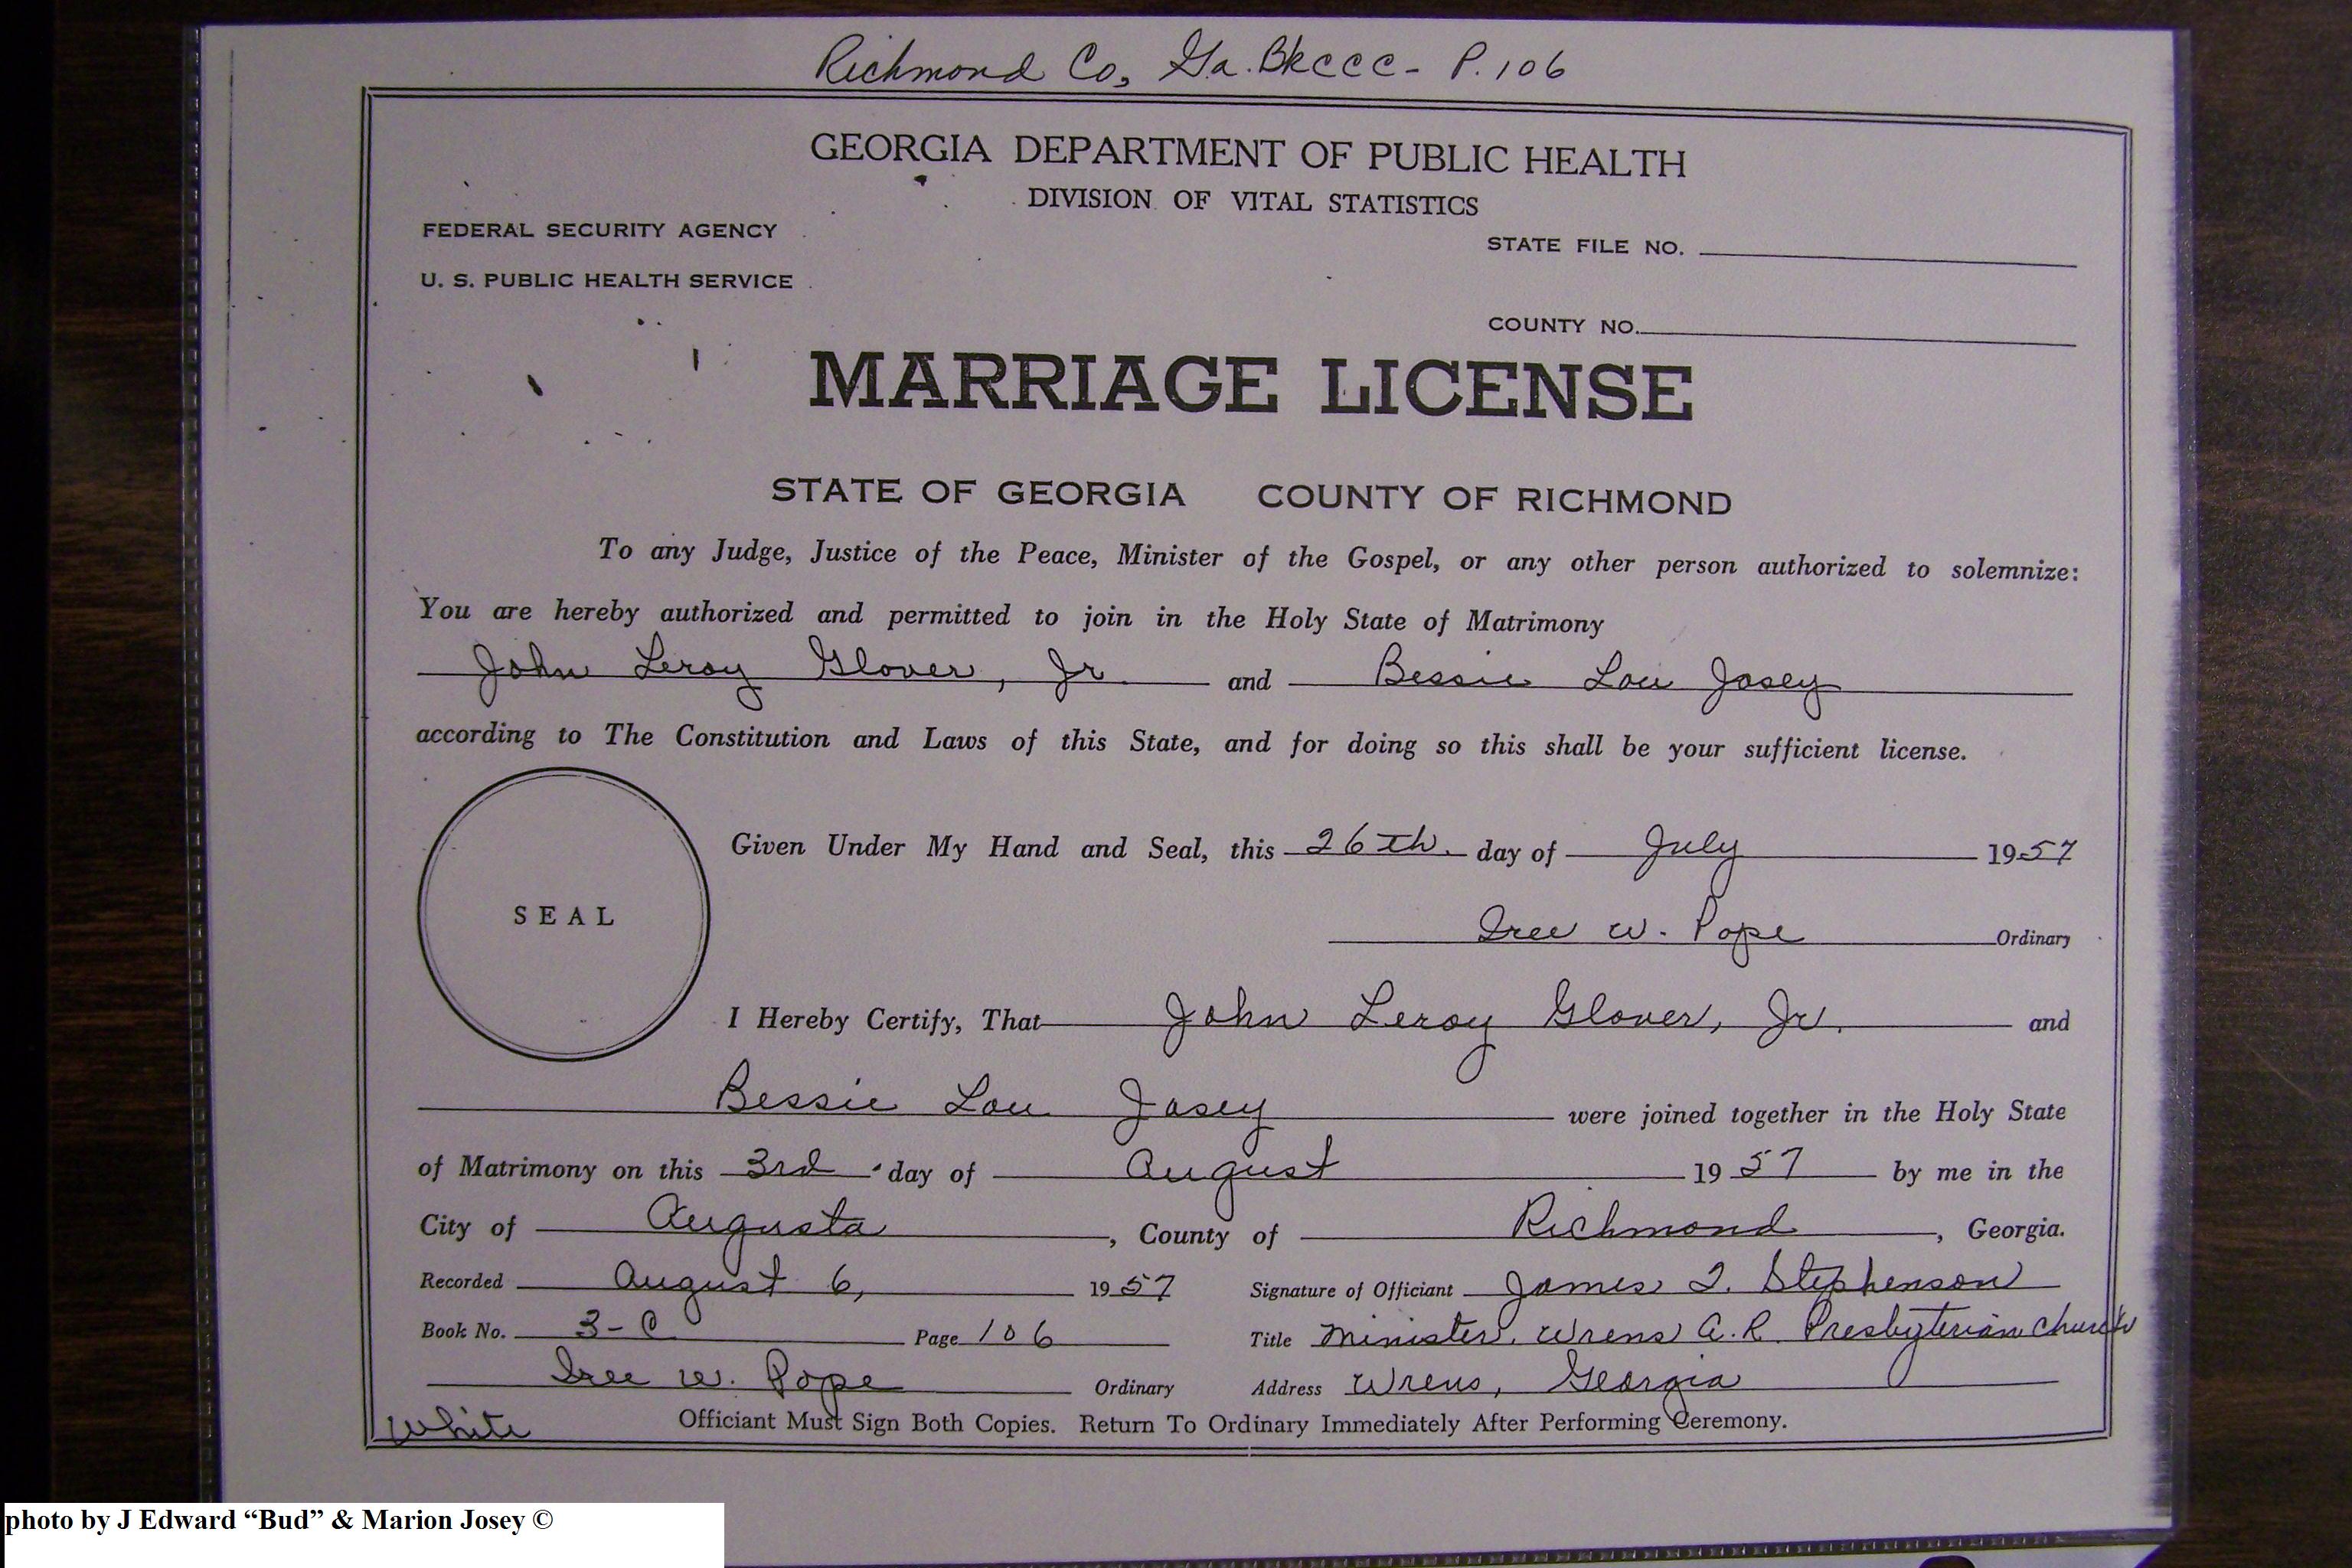 Richmond Co, Ga. Bk CCC - P. 106
GEORGIA DEPARTMENT OF PUBLIC HEALTH
DIVISION OF VITAL STATISTICS
FEDERAL SECURITY AGENCY
STATE FILE NO.
U. S. PUBLIC HEALTH SERVICE
COUNTY NO.
MARRIAGE LICENSE
STATE OF GEORGIA COUNTY OF RICHMOND
To any Judge, Justice of the Peace, Minister of the Gospel, or any other person authorized to solemnize:
You are hereby authorized and permitted to join in the Holy State of Matrimony
John Leroy Glover, Jr. and Bessie Lou Josey
according to The Constitution and Laws of this State, and for doing so this shall be your sufficient license.
SEAL
Given Under My Hand and Seal, this 26th. day of July 1957
W. Pope Ordinary
I Hereby Certify, That John Leroy Glover, Jr. and
Bessie Lou Josey were joined together in the Holy State
of Matrimony on this 3rd day of August 1957 by me in the
City of Augusta, County of Richmond, Georgia.
Recorded August 6, 1957 Signature of Officiant James T. Stephenson
Book No. 3-C Page 106 Title Minister, Wrens A. R. Presbyterian Church
W. Pope Ordinary Address Wrens, Georgia
White Officiant Must Sign Both Copies. Return To Ordinary Immediately After Performing Ceremony.
photo by J Edward “Bud” & Marion Josey ©